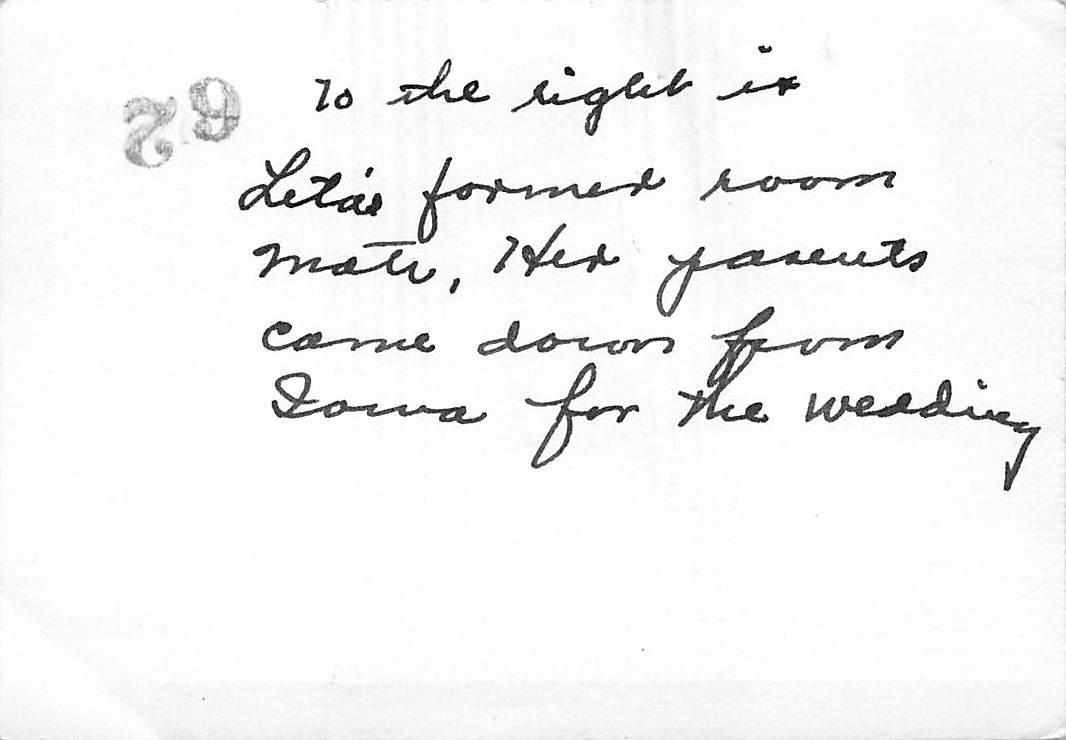 29
To the right is
Leta's former room
mate, Her parents
came down from
Iowa for the wedding